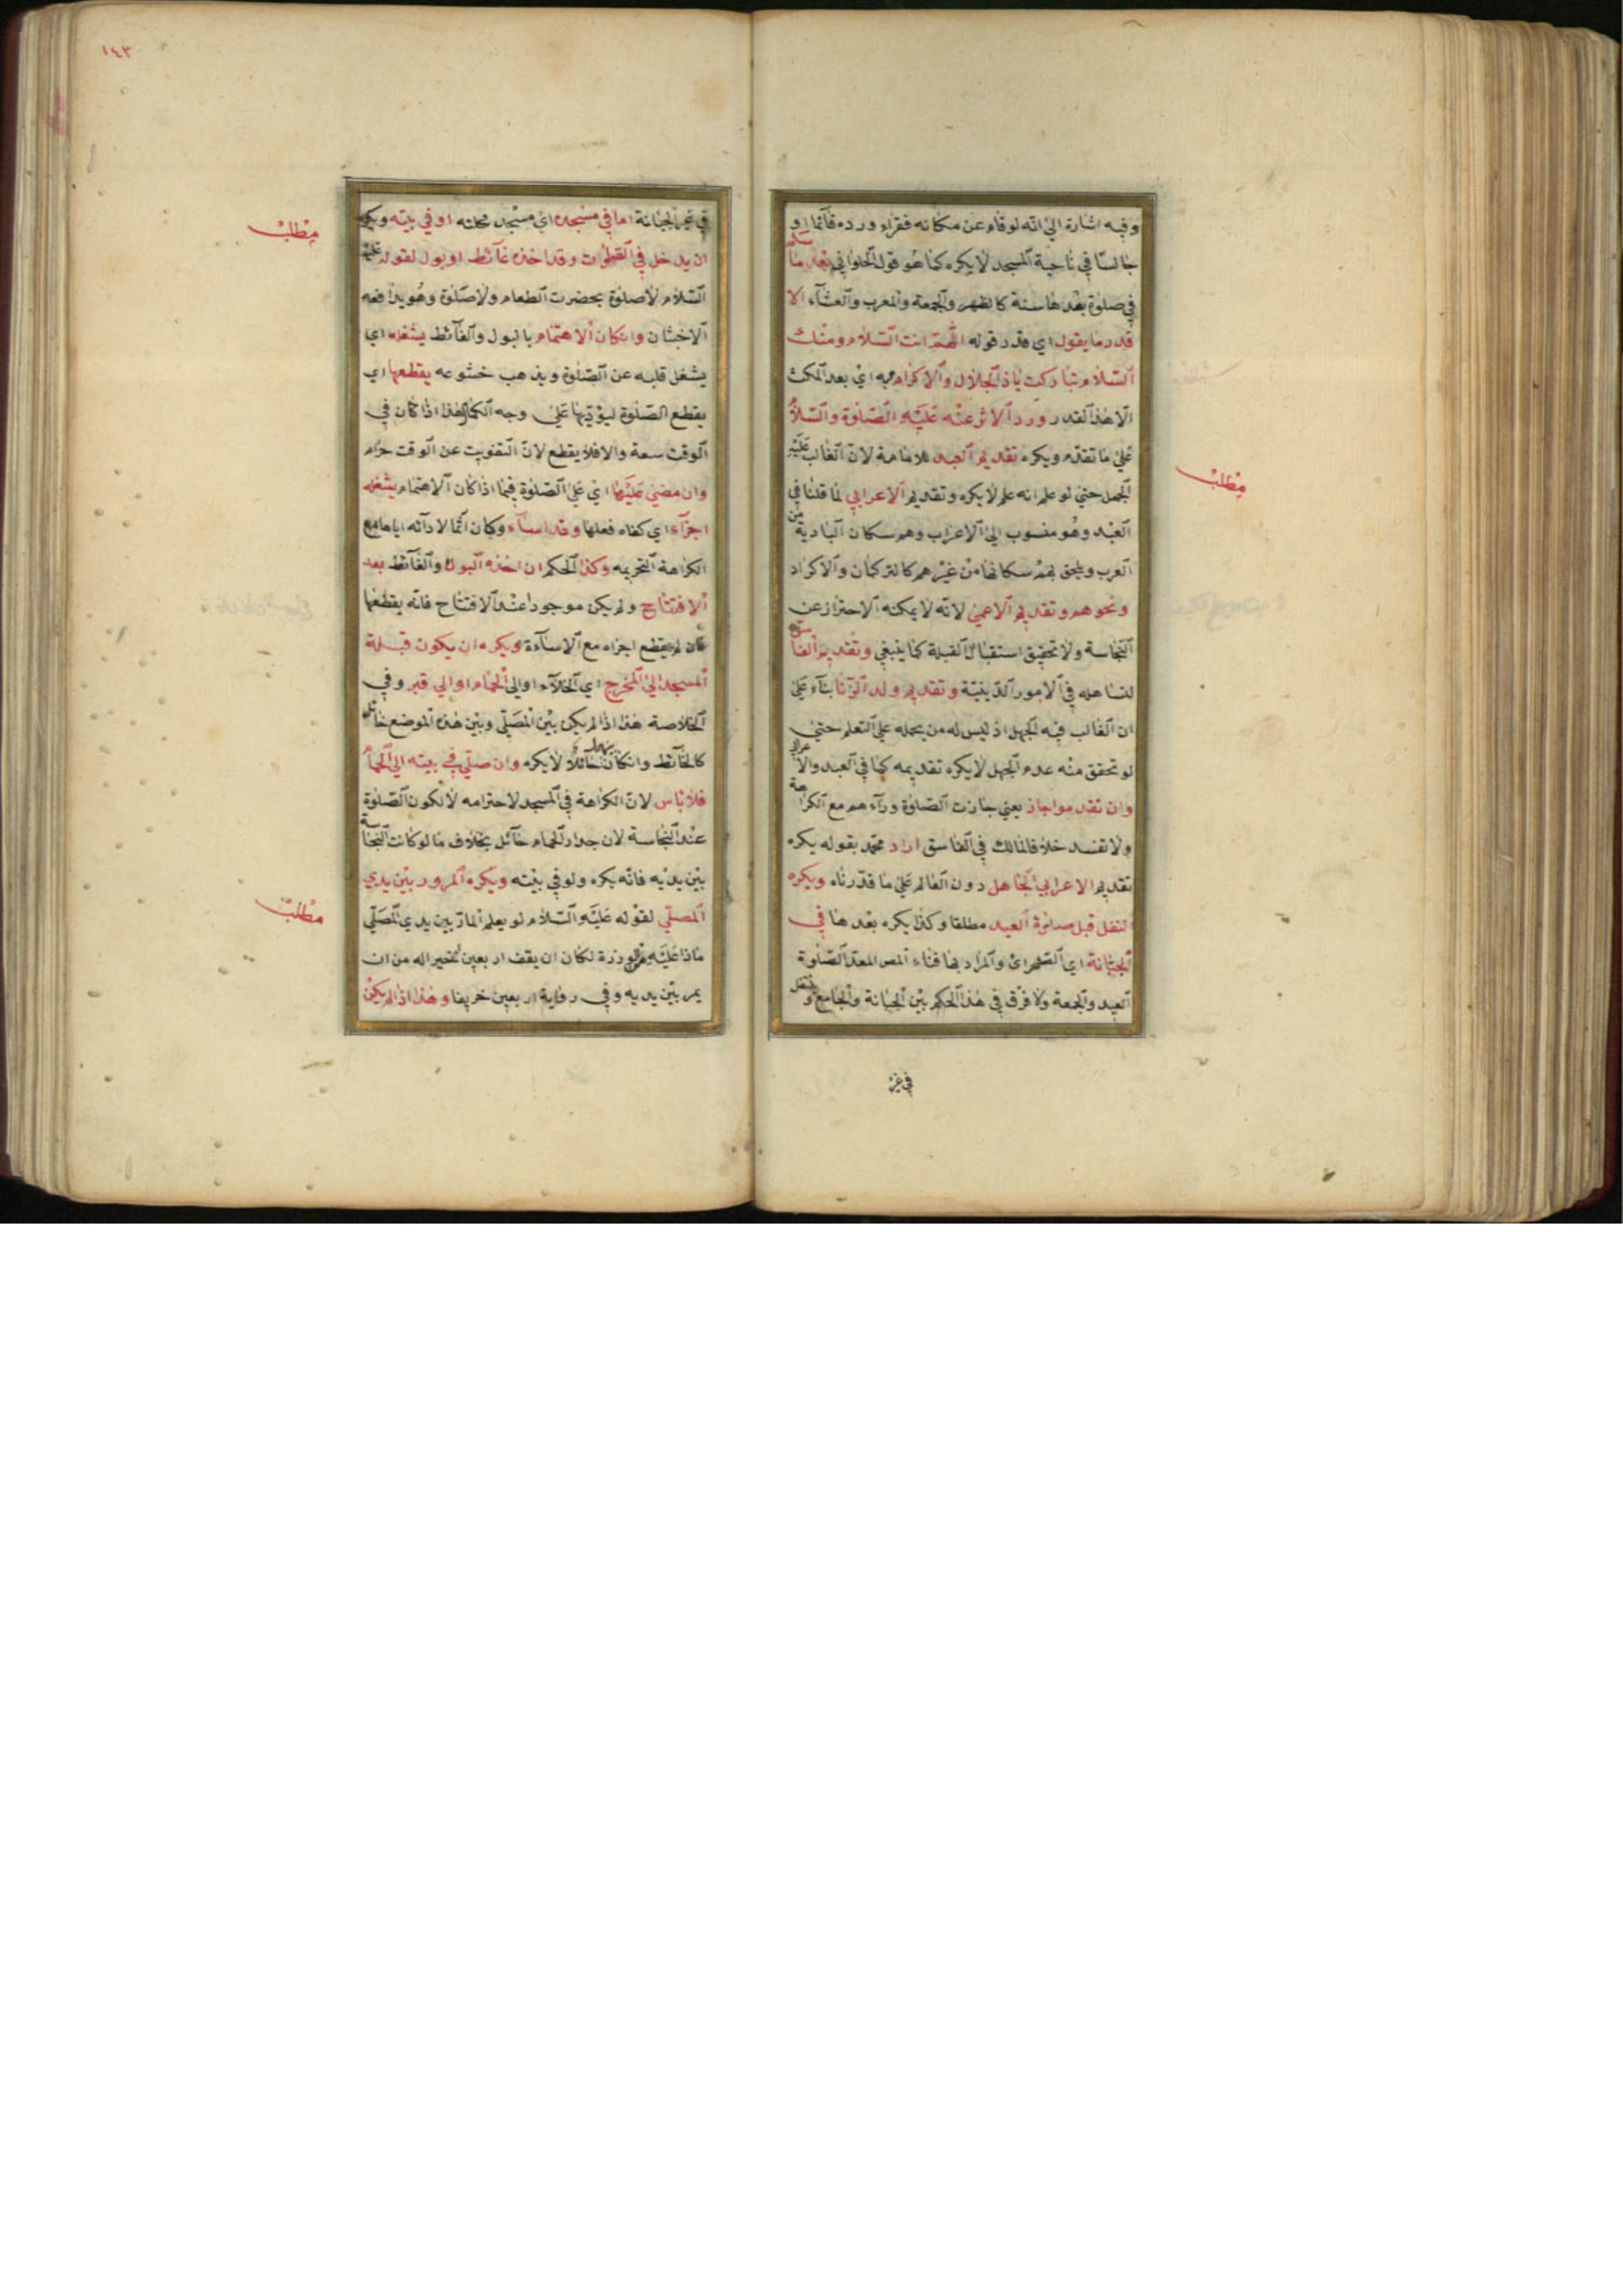 وفيه اشارة الى انه لو قام عن مكانه فقراء ورده قائما او
جالسا في ناحية المسجد لا يكره كما هو قول الحلواني بعد ما سلم
في صلوة بعدها سنة كالظهر والجمعة والمغرب والعشاء الا
قدر ما يقول اي قدر قوله اللهم انت السلام ومنك
السلام تباركت ياذا الجلال والاكرام به اي بعد المكث
الا هذا القدر ورد الاثر عنه عليه الصلوة والسلام
على ما تقدم ويكره تقديم العبد للامامة لان الغالب عليه
الجهل حتى لو علم انه علم لا يكره وتقديم الاعرابي لما قلنا في
العبد وهو منسوب الى الاعراب وهم سكان البادية من
العرب ويلحق بهم سكانها من غيرهم كالتركمان والاكراد
ونحوهم وتقديم الاعمى لانه لا يمكنه الاحتراز عن
النجاسة ولا تحقيق استقبال القبلة كما ينبغي وتقديم الفاسق
لتساهله في الامور الدينية وتقديم ولد الزنا بناء على
ان الغالب فيه الجهل اذ ليس له من يحمله على التعلم حتى
لو تحقق منه عدم الجهل لا يكره تقديمه كما في العبد والاعرابي
وان تقدموا جاز يعني جازت الصلوة وراءهم مع الكراهة
ولا تفسد خلافا لمالك في الفاسق اراد محمد بقوله يكره
تقديم الاعرابي الجاهل دون العالم على ما قدرناه ويكره
التنفل قبل صلوة العيد مطلقا وكذا يكره بعدها في
الجبانة اي الصحراى والمراد بها فناء المصر المعد لصلوة
العيد والجمعة ولا فرق في هذا الحكم بين الجبانة والجامع وتنفل
في غير
مطلب
١٤٣
في غير الجبانة اما في مسجده اي مسجد محلته او في بيته ويكره
ان يدخل في الصلوات وقد اخذه غائط او بول لقوله عليه
السلام لا صلوة بحضرت الطعام ولا صلوة وهو يدافعه
الاخبثان وان كان الاهتمام بالبول والغائط يشغله اي
يشغل قلبه عن الصلوة ويذهب خشوعه يقطعها اي
يقطع الصلوة ليؤديها على وجه الكمال هذا اذا كان في
الوقت سعة والا فلا يقطع لان التفويت عن الوقت حرام
وان مضى عليها اي على الصلوة فيما اذا كان الاهتمام يشغله
اجزاءه اي كفاه فعلها وقد اساء وكان آثما لادائه اياها مع
الكراهة التحريمه وكذا الحكم ان اخذه البول والغائط بعد
الافتتاح ولم يكن موجودا عند الافتتاح فانه يقطعها
فان لم يقطع اجزاه مع الاساءة ويكره ان يكون قبلة
المسجد الى المخرج اي الخلاء او الى الحمام او الى قبر وفي
الخلاصة هذا اذا لم يكن بين المصلي وبين هذه الموضع حائل
كالحائط وان كان بينهما حائلا لا يكره وان صلى في بيته الى الحمام
فلا باس لان الكراهة في المسجد لاحترامه لا لكون الصلوة
عند النجاسة لان جدار الحمام حائل بخلاف ما لو كانت النجاسة
بين يديه فانه يكره ولو في بيته ويكره المرور بين يدي
المصلي لقوله عليه السلام لو يعلم المار بين يدي المصلي
ماذا عليه من الوزرة لكان ان يقف اربعين خير اله من ان
يمر بين يديه وفي رواية اربعين خريفا وهذا اذا لم يكن
مطلب
مطلب